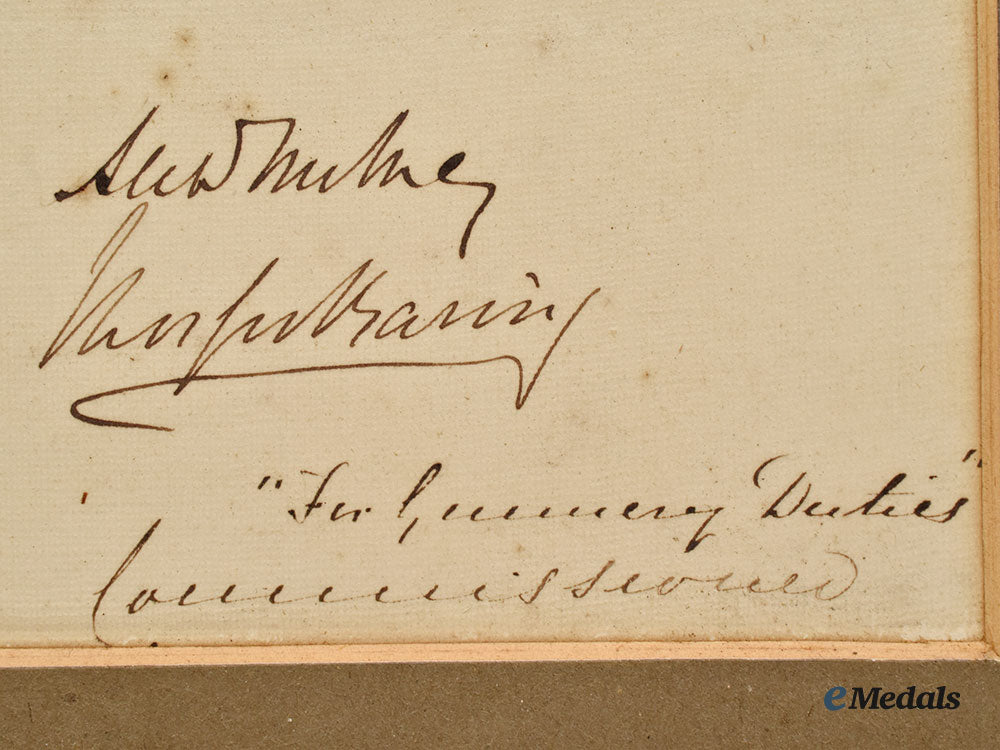 Alex Milne
Thos Geo Baring
"For Gunnery Duties"
Commissioned
eMedals